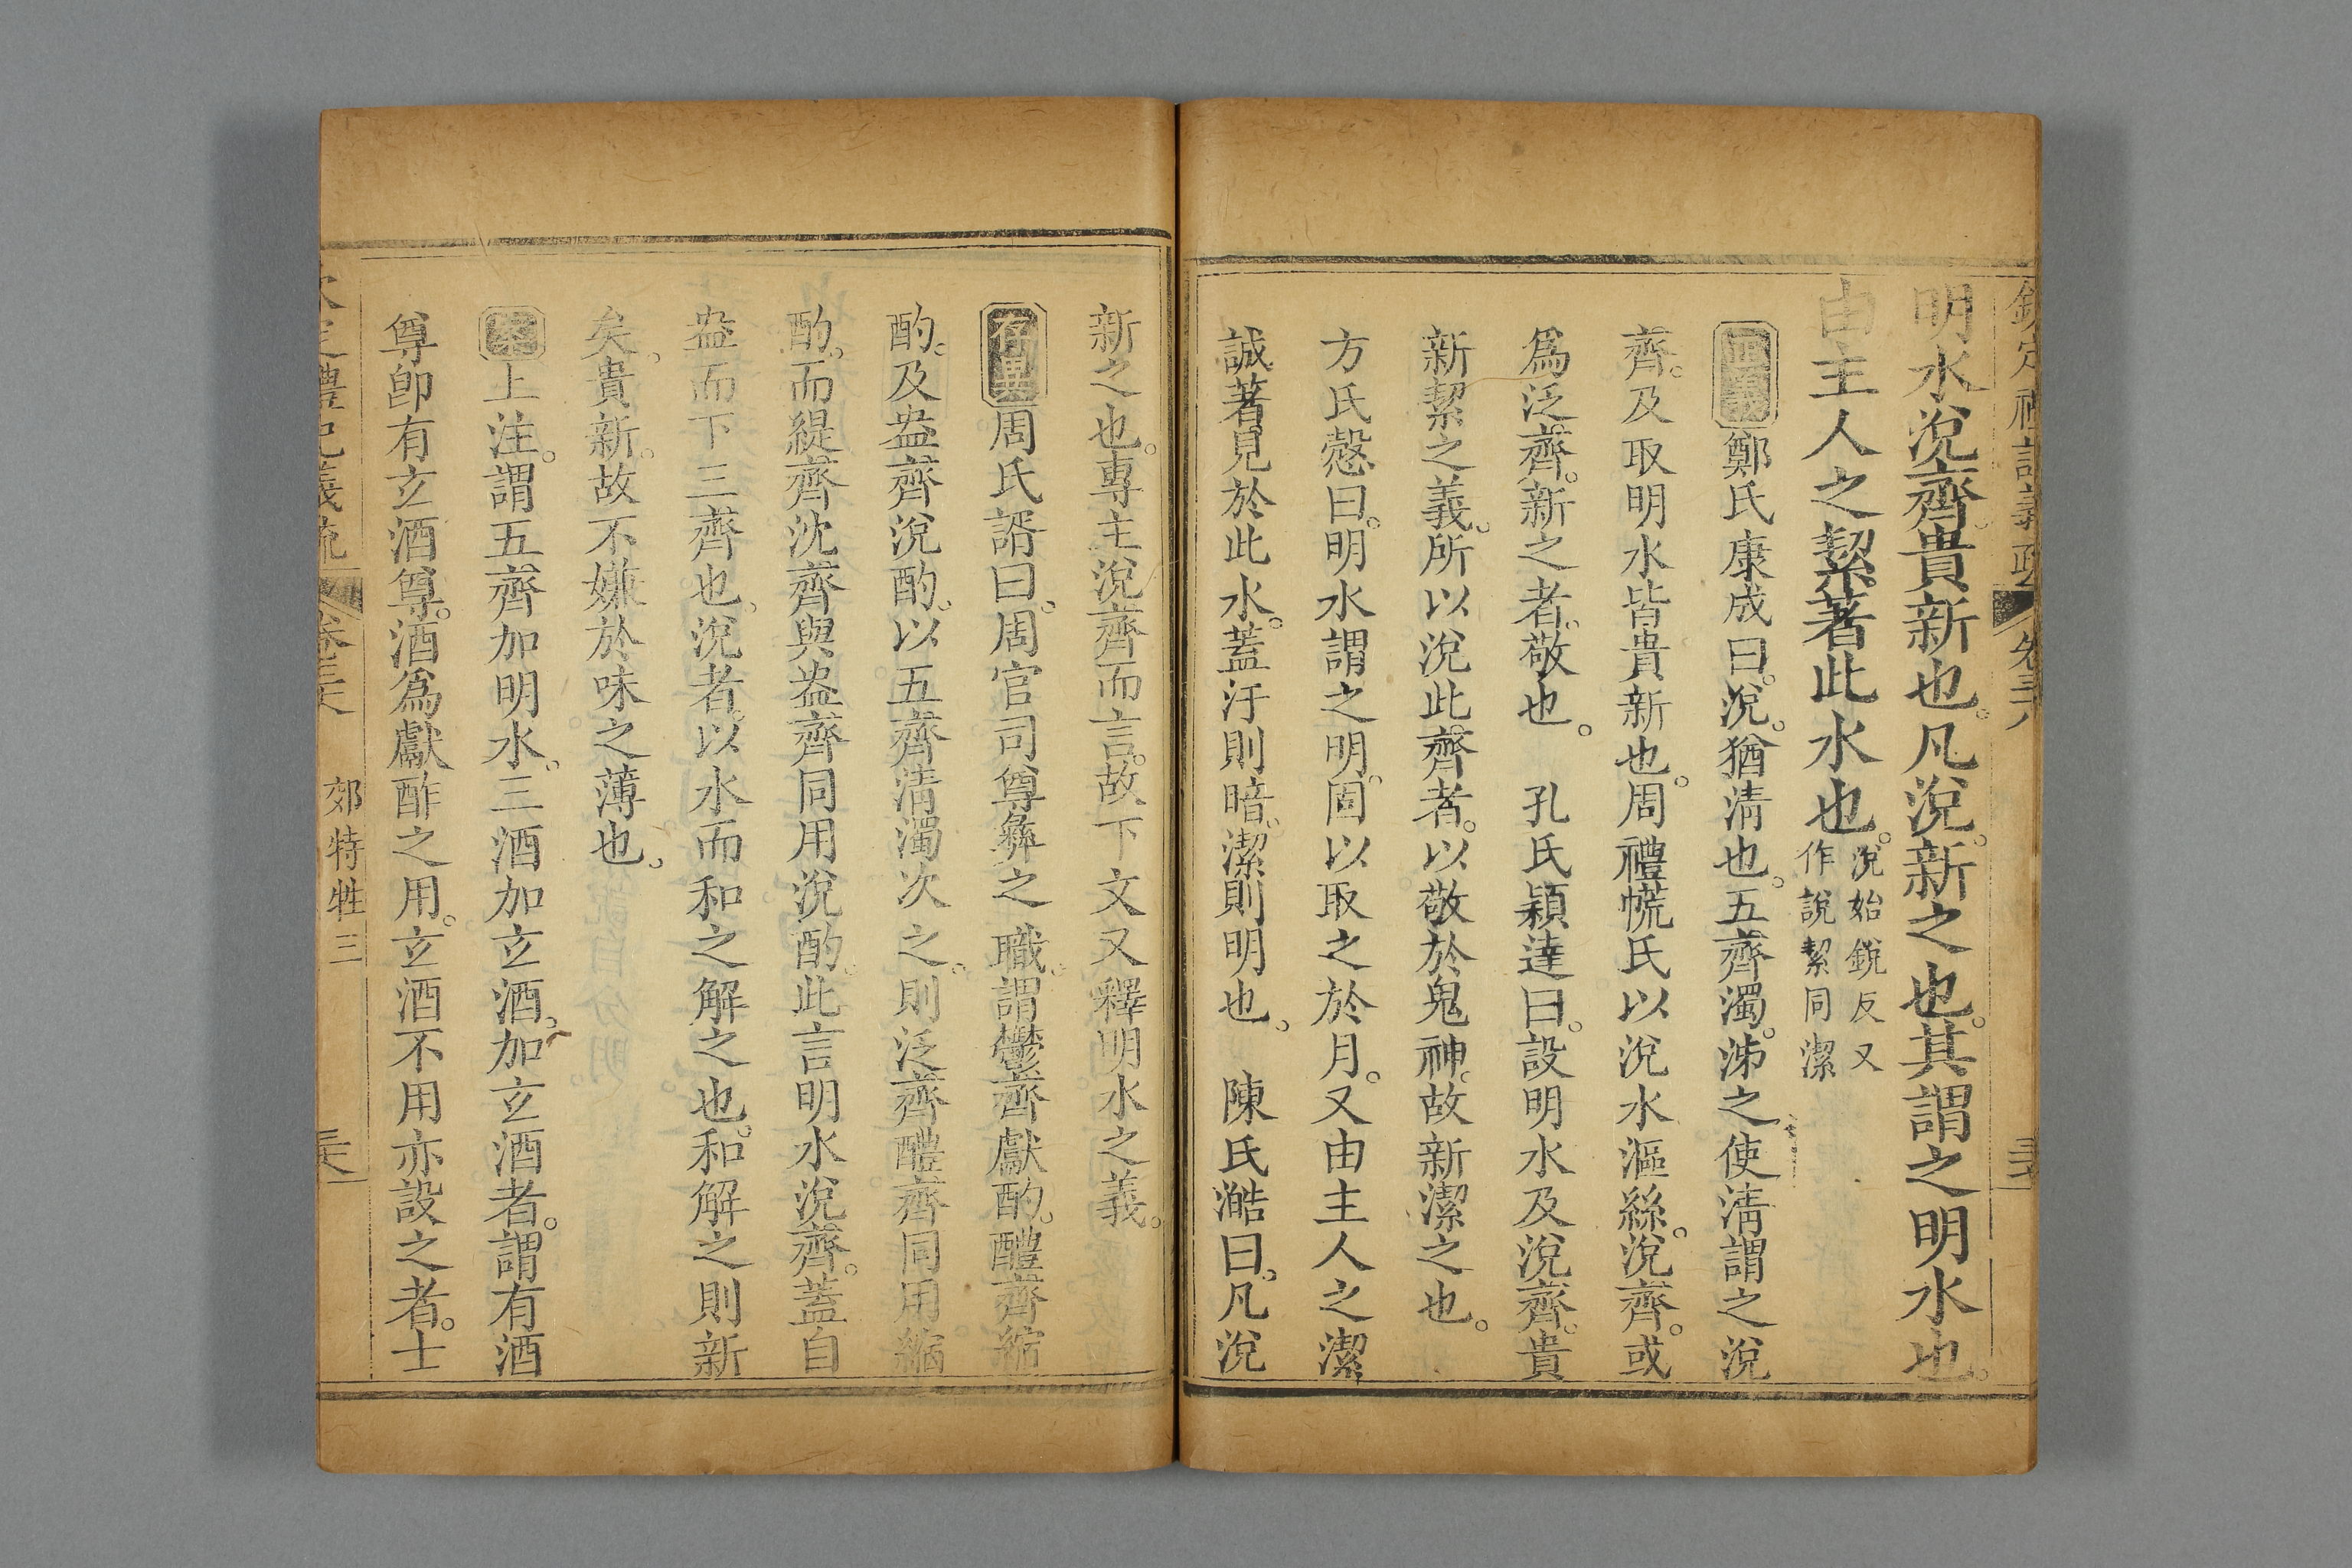 明水涗齊貴新也。凡涗。新之也。其謂之明水也。
由主人之絜著此水也。涗始銳反又作說絜同潔
正義鄭氏康成曰。涗。猶淸也。五齊濁。泲之使淸謂之涗
齊。及取明水皆貴新也。周禮㡛氏以涗水漚絲。涗齊。或
爲泛齊。新之者。敬也。 孔氏穎達曰。設明水及涗齊。貴
新絜之義。所以涗此齊者。以敬於鬼神。故新潔之也。
方氏慤曰。明水謂之明。固以取之於月。又由主人之潔
誠著見於此水。蓋汙則暗。潔則明也。 陳氏澔曰。凡涗
新之也。專主涗齊而言。故下文又釋明水之義。
存異周氏諝曰。周官司尊彝之職。謂鬱齊獻酌。醴齊縮
酌。及盎齊涗酌。以五齊淸濁次之。則泛齊醴齊同用縮
酌。而緹齊沈齊與盎齊同用涗酌。此言明水涗齊。蓋自
盎而下三齊也。涗者。以水而和之解之也。和解之則新
矣。貴新。故不嫌於味之薄也。
案上注。謂五齊加明水。三酒加玄酒。加玄酒者。謂有酒
尊卽有玄酒尊。酒爲獻酢之用。玄酒不用亦設之者。士
欽定禮記義疏 卷三十八 郊特牲三